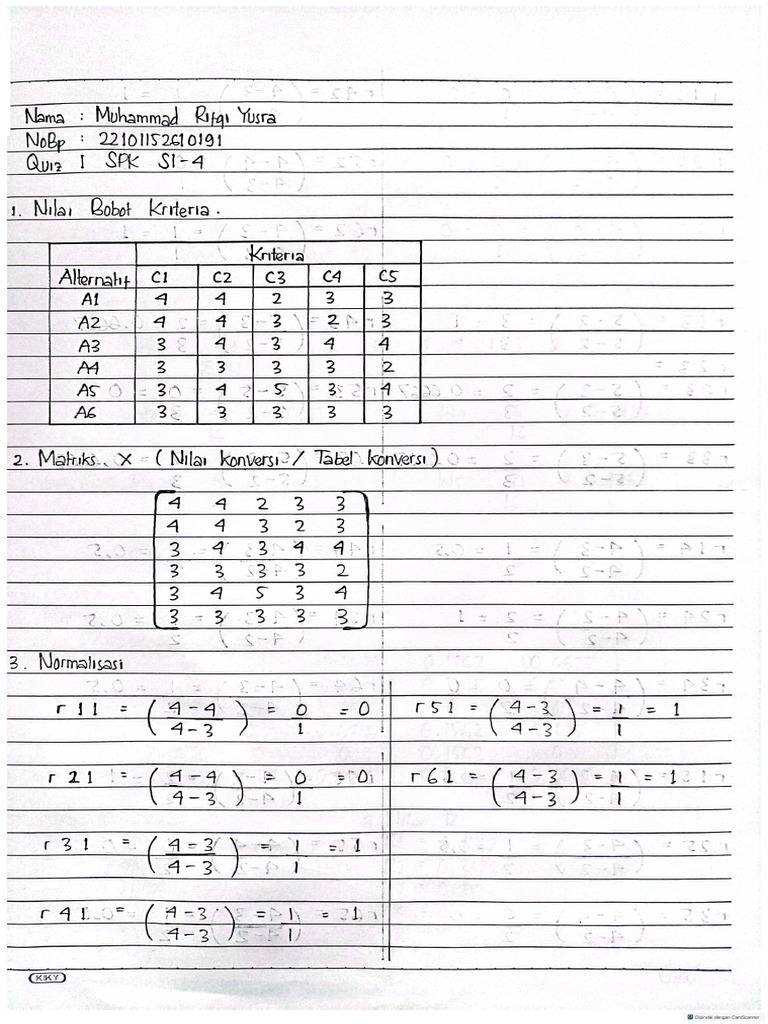 Nama : Muhammad Rifqi Yusra
NoBp : 22101152610191
Quiz I SPK SI-4
1. Nilai Bobot Kriteria.
Kriteria
Alternatif C1 C2 C3 C4 C5
A1 4 4 2 3 3
A2 4 4 3 2 3
A3 3 4 3 4 4
A4 3 3 3 3 2
A5 3 4 5 3 4
A6 3 3 3 3 3
2. Matriks X = (Nilai konversi / Tabel konversi)
4 4 2 3 3
4 4 3 2 3
3 4 3 4 4
3 3 3 3 2
3 4 5 3 4
3 3 3 3 3
3. Normalisasi
r11 = (4-4 / 4-3) = 0/1 = 0
r21 = (4-4 / 4-3) = 0/1 = 0
r31 = (4-3 / 4-3) = 1/1 = 1
r41 = (4-3 / 4-3) = 1/1 = 1
r51 = (4-3 / 4-3) = 1/1 = 1
r61 = (4-3 / 4-3) = 1/1 = 1
KIKY
Dipindai dengan CamScanner